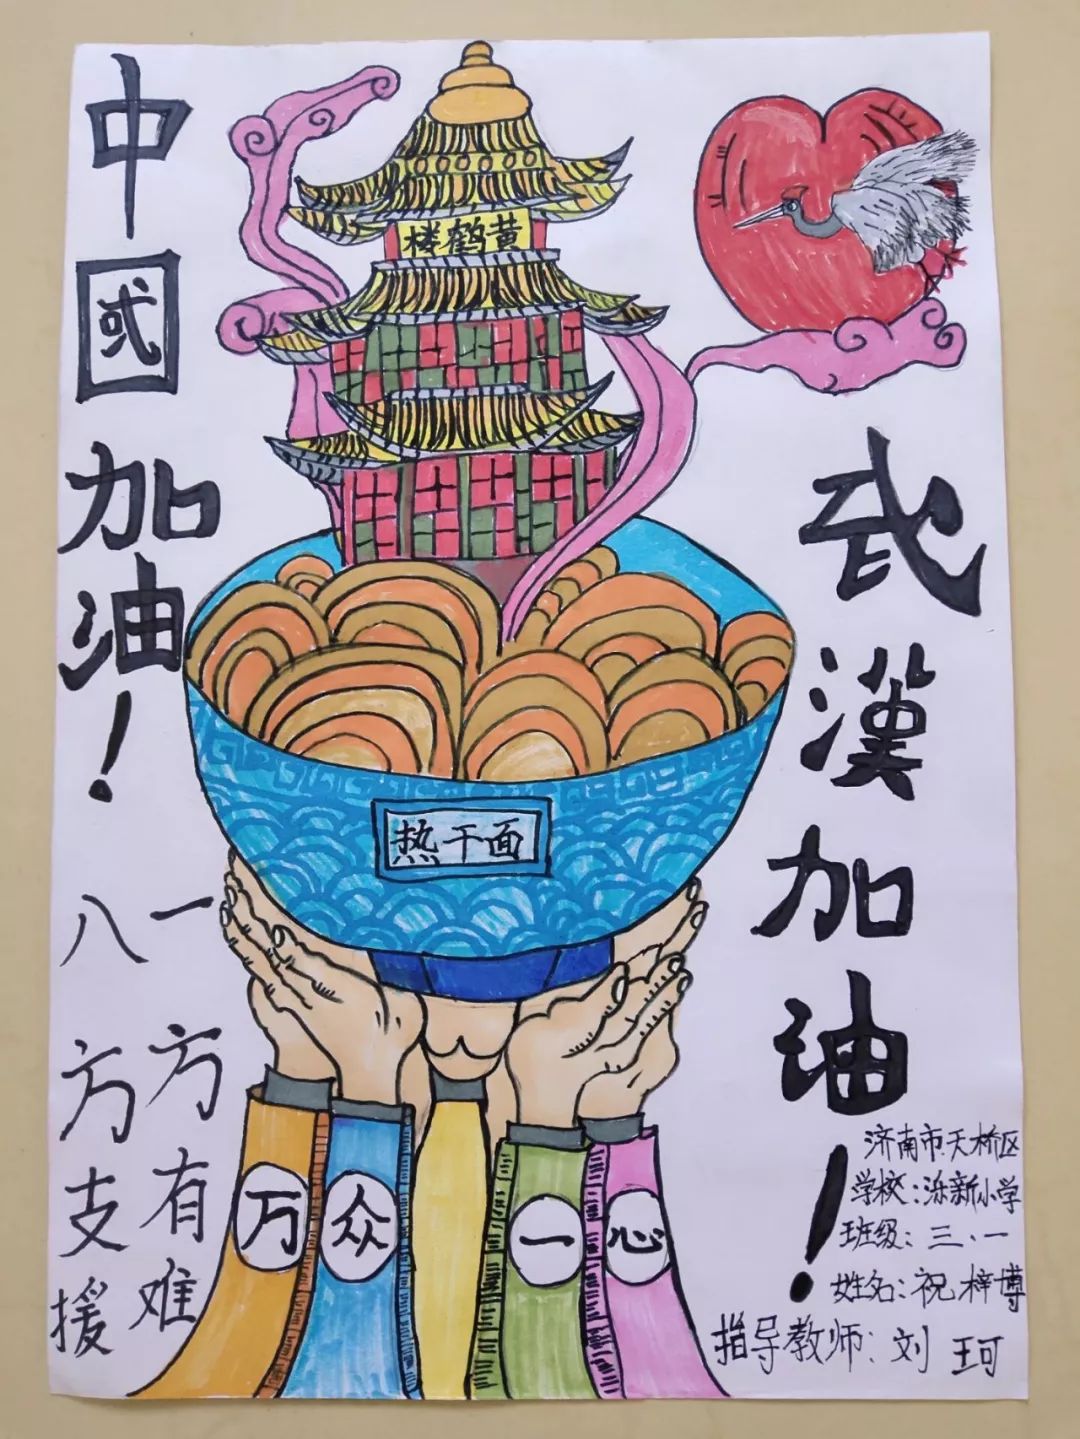 中國加油！
黄鹤楼
武漢加油！
热干面
一方有难
八方支援
万众一心
济南市天桥区
学校：泺新小学
班级：三.一
姓名：祝梓博
指导教师：刘珂